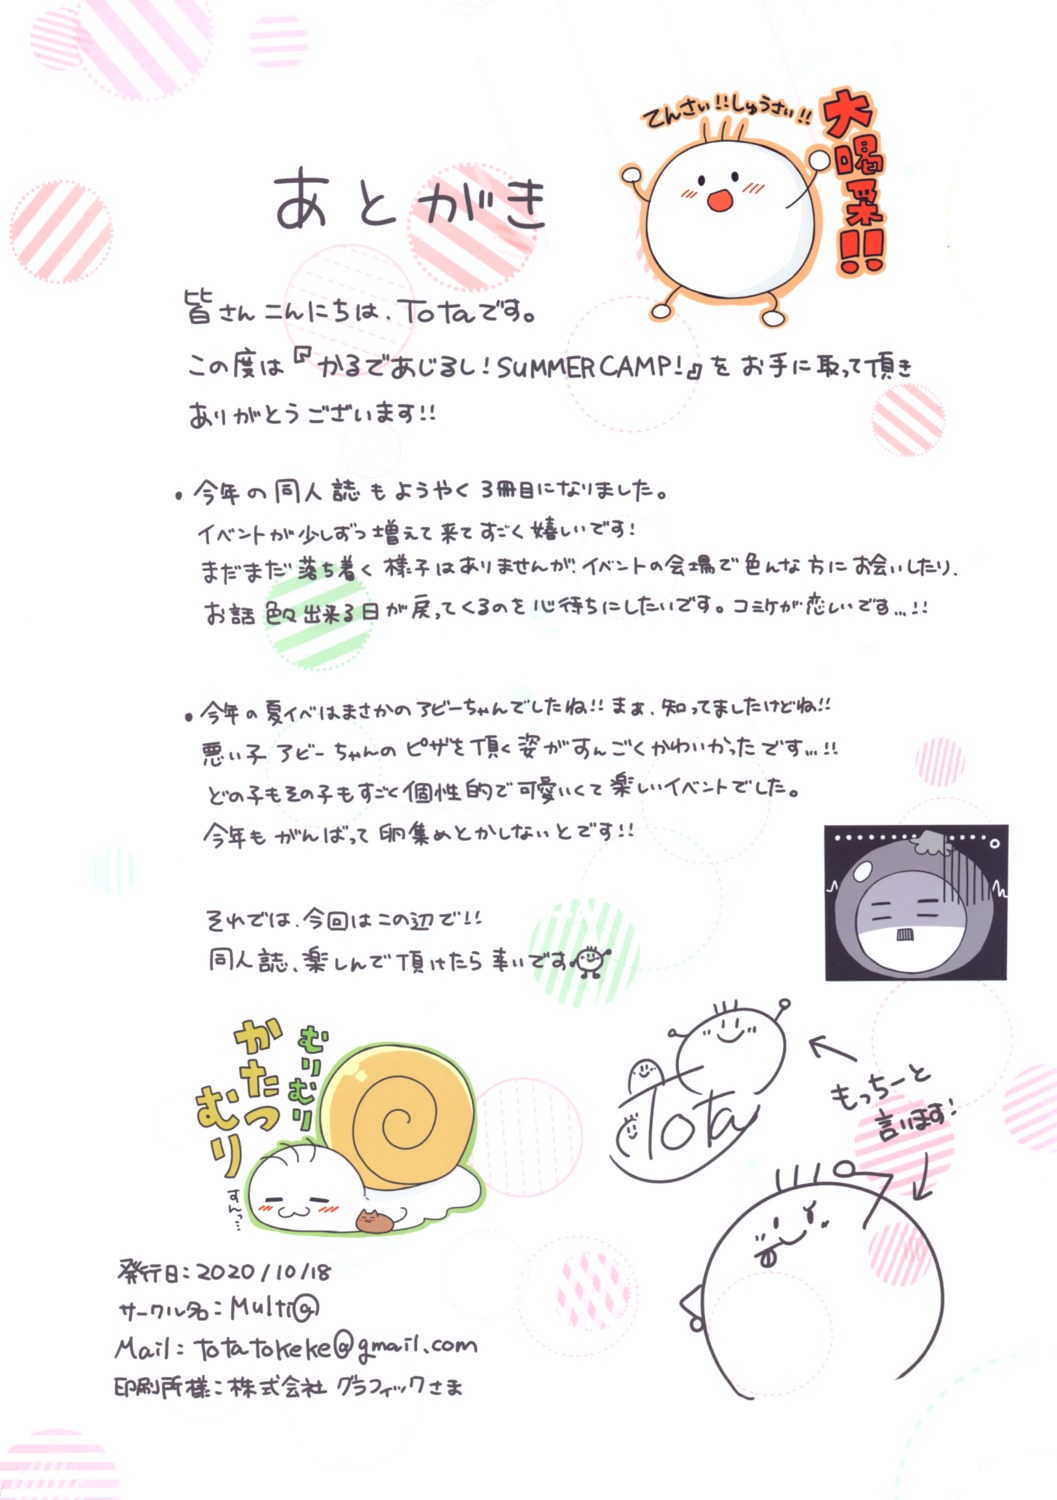 てんさい!!しゅうさい!!
大喝采!!
あとがき
皆さんこんにちは、Totaです。
この度は『かるであじるし!SUMMER CAMP!』をお手に取って頂き
ありがとうございます!!
・今年の同人誌もようやく3冊目になりました。
イベントが少しずつ増えて来てすごく嬉しいです!
まだまだ落ち着く様子はありませんが、イベントの会場で色んな方にお会いしたり、
お話色々出来る日が戻ってくるのを心待ちにしたいです。コミケが恋しいです...!!
・今年の夏イベはまさかのアビーちゃんでしたね!!まぁ、知ってましたけどね!!
悪い子アビーちゃんのピザを頂く姿がすんごくかわいかったです...!!
どの子もその子もすごく個性的で可愛いくて楽しいイベントでした。
今年もがんばって卵集めとかしないとです!!
それでは、今回はこの辺で!!
同人誌、楽しんで頂けたら幸いです
むりむり
かたつ
むり
すんっ...
Tota
もっちーと
言います!
発行日:2020/10/18
サークル名:Multi@
Mail:totatokeke@gmail.com
印刷所様:株式会社 グラフィックさま